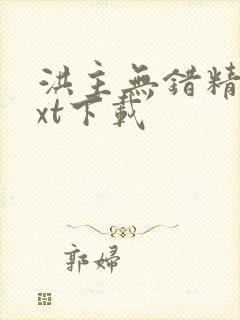 洪主無错精
xt下載
郭婦